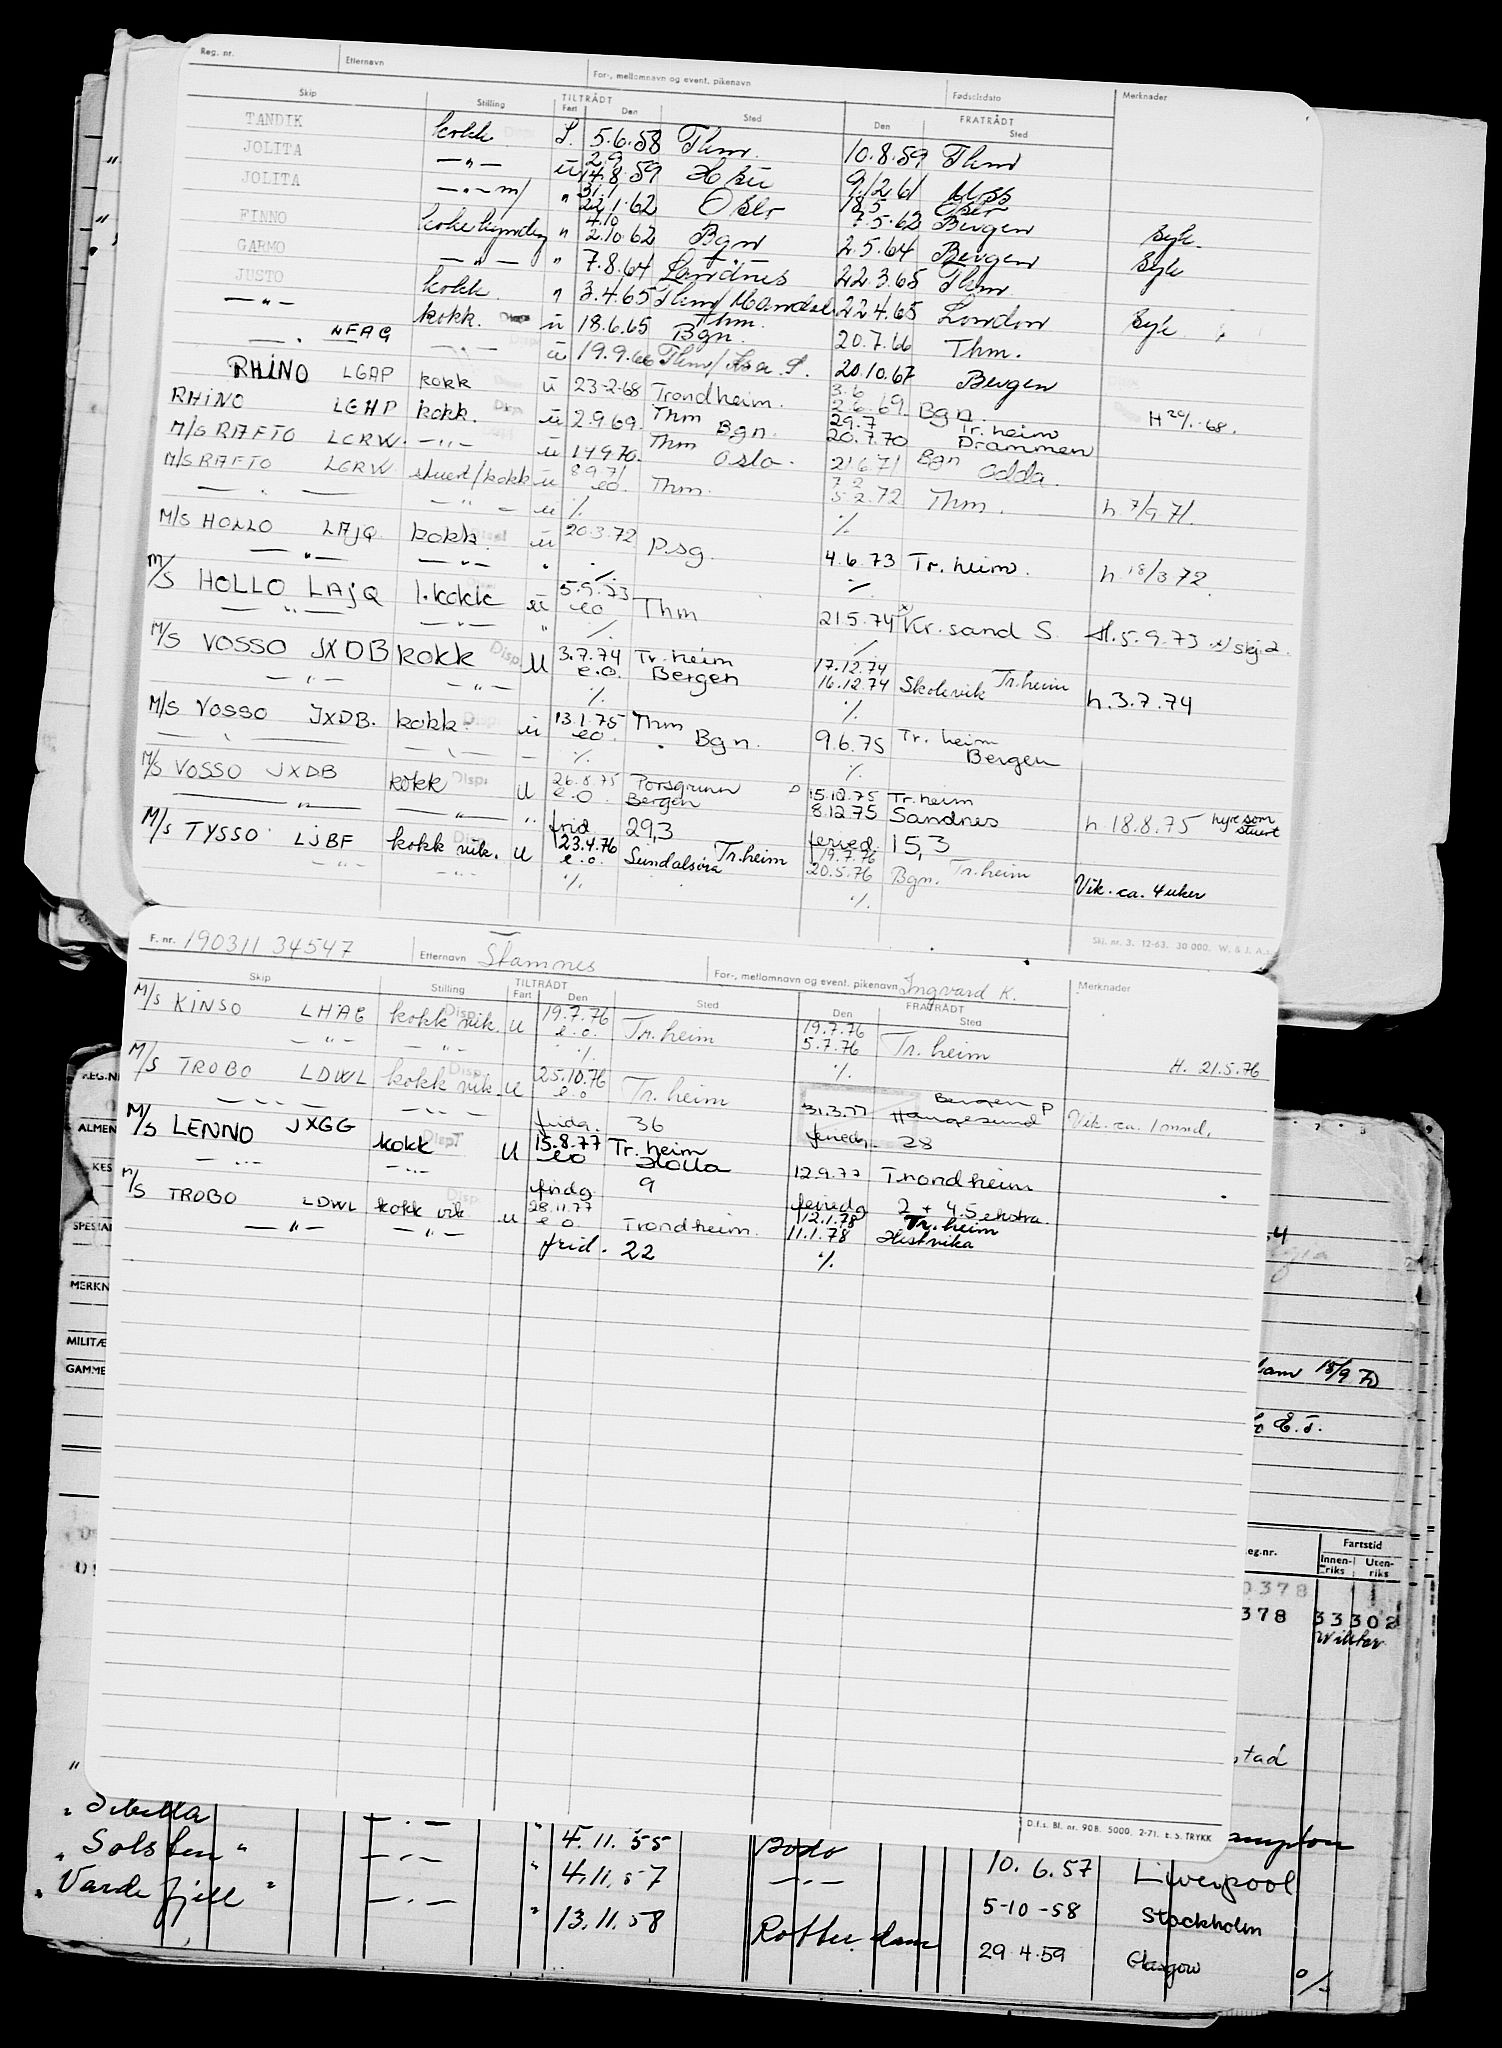 Reg. nr. Etternavn For-, mellomnavn og event. pikenavn Fødselsdato Merknader
Skip Stilling TILTRÅDT Fart Den Sted Den FRATRÅDT Sted
TANDIK kokk 5.6.58 Thm. 10.8.59 Thm
JOLITA —"— u 2.9 14.8.59 9.12.61 Moss
JOLITA —"— m/ " 31.1 22.1.62 Oslo 18.5 7.5.62 Oslo Bergen
FINNO " 4.10 2.10.62 Bgn 2.5.64 Bergen Syk
GARMO —"— " 7.8.64 Sandnes 22.3.65 Thm Syk
JUSTO kokk " 3.4.65 Thm/Mandal 22.4.65 London
—"— kokk. u 18.6.65 Thm. Bgn. 20.7.66 Thm. Syk
—"— NFAG —"— u 19.9.66 Thm/ 20.10.67 Bergen
RHINO LGAP kokk u 23-2-68 Trondheim. 3.6 2.6.69 Bgn. Tr.heim
RHINO LGHP kokk. u 2.9.69 Thm Bgn. 29.7 20.7.70 Drammen
M/S RAFTO LCRW. —"— u 14970. Thm Oslo. 21.6.71 Bgn Odda.
M/S RAFTO LCRW stuert/kokk u 8971 eo. Thm. 7.2 5.2.72 Thm. h. 7/9 71.
—"— —"— u % %
M/S HOLLO LAJQ kokk u 20.3.72 P.sg. 4.6.73 Tr.heim. h. 18/3 72
—"— —"— " % %
M/S HOLLO LAJQ 1.kokk u 5.9.73 eo Thm 21.5.74 Kr.sand S. H. 5.9.73 x/ skj.2
—"— —"— " % %
M/S VOSSO JXDB kokk Disp. U 3.7.74 e.o. Tr.heim Bergen 17.12.74 16.12.74 Skolevik Tr.heim h. 3.7.74
—"— —"— % %
M/S VOSSO JXDB. kokk. u 13.1.75 eo. Thm Bgn. 9.6.75 Tr. heim Bergen
—"— —"— % %
M/S VOSSO JXDB kokk Disp. U 26.8.75 e.o. Porsgrunn Bergen 15.12.75 8.12.75 Tr.heim Sandnes h 18.8.75 hyre som stuert
—"— —"— " frid 29,3 feried. 15,3
M/S TYSSO LJBF kokk vik. U 23.4.76 e.o. Sundalsøra Tr.heim 19.7.76 20.5.76 Bgn. Tr.heim Vik. ca. 4 uker
—"— —"— % %
Skj. nr. 3. 12-63. 30 000. W. & J. A.
F. nr. 190311 34547 Etternavn Stamnes For-, mellomnavn og event. pikenavn Ingvard K. Merknader
Skip Stilling TILTRÅDT Fart Den Sted Den FRATRÅDT Sted
M/S KINSO LHAG kokk vik. U 19.7.76 e.o. Tr.heim 19.7.76 5.7.76 Tr.heim H. 21.5.76
—"— —"— % %
M/S TROBO LDWL kokk vik. U 25.10.76 e.o Tr.heim 31.3.77 Bergen P Haugesund Vik. ca. 1 mnd.
—"— —"— fridg. 36 feriedg. 28
M/S LENNO JXGG kokk U 15.8.77 eo Tr.heim Holla 12.9.77 Trondheim
—"— —"— fridg 9 feriedg 2 + 4.5 ekstra.
M/S TROBO LDWL kokk vik U 28.11.77 e.o. Trondheim. 12.1.78 11.1.78 Tr.heim Hestvika
—"— —"— frid. 22 %
D.f.s. Bl. nr. 908. 5000, 2-71. E. S. TRYKK
REG.N
ALMEN
KES
SPESIAL
MERKN
MILITÆ
GAMME
15/9 70
E.T.
eg.nr. Fartstid
Innen-riks Uten-riks
0378
378 33302
stad
" —"— " 4.11.55 Bodø
" Solstein " —"— " 4.11.57 —"— 10.6.57 Liverpool
" Vardefjell " —"— " 13.11.58 Rotterdam 5-10-58 Stockholm
29.4.59 Glasgow %